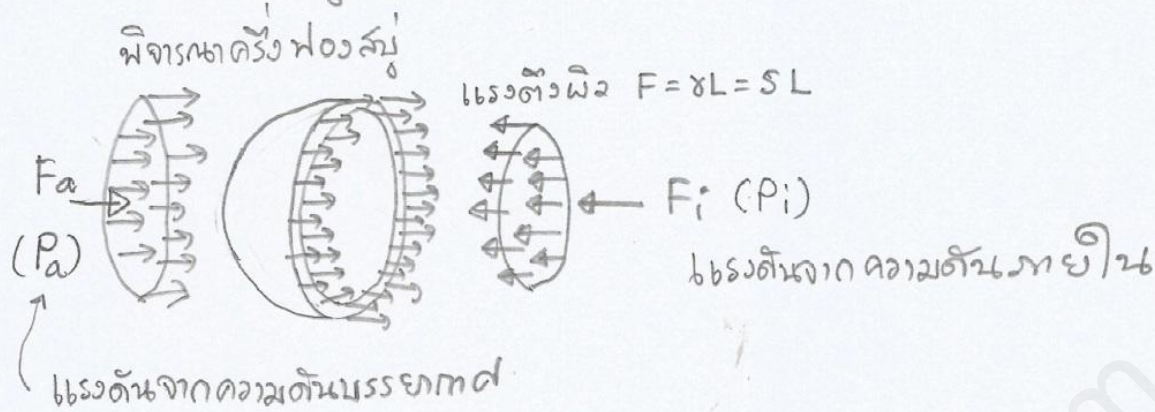 พิจารณาครึ่งฟองสบู่
แรงตึงผิว F = γL = SL
Fa
(Pa)
Fi (Pi)
แรงดันจากความดันภายใน
แรงดันจากความดันบรรยากาศ